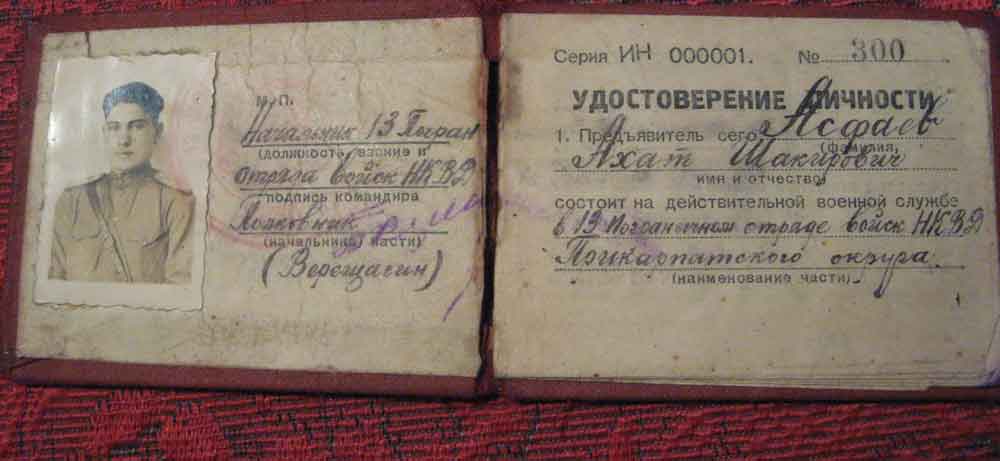 М.П.
Начальник 13 Погран
(должность, звание и
отряда войск НКВД
подпись командира
Полковник
(начальника) части)
(Верещагин)
Серия ИН 000001. № 300
УДОСТОВЕРЕНИЕ ЛИЧНОСТИ
1. Предъявитель сего Асфаев
(фамилия,
Ахат Шакирович
имя и отчество)
состоит на действительной военной службе
в 13 Пограничном отряде войск НКВД
Прикарпатского округа.
(наименование части)